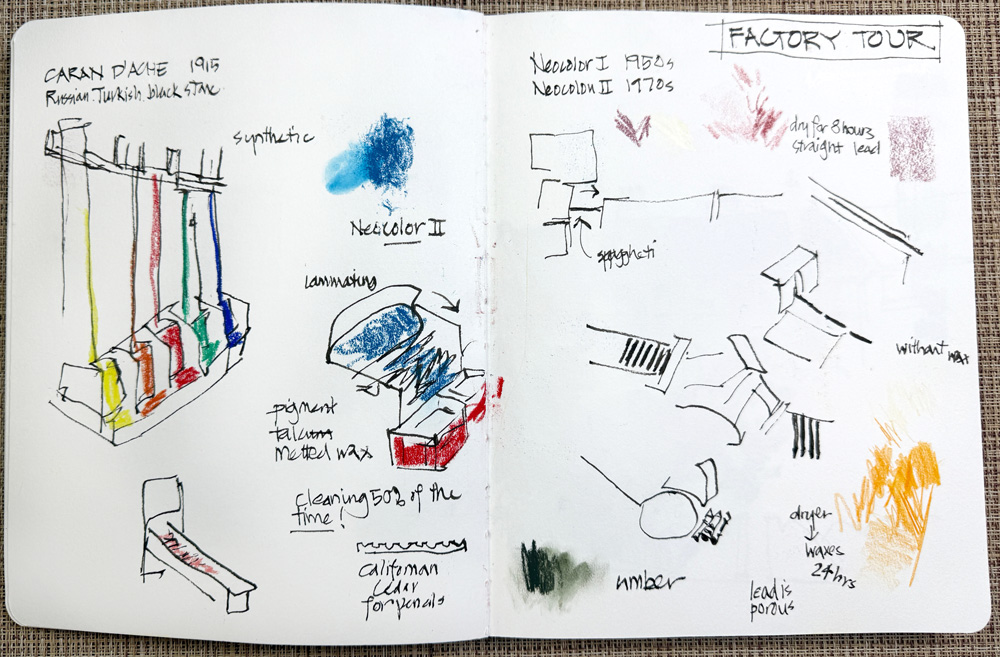 CARAN D'ACHE 1915
Russian. Turkish. black stone
synthetic
Neocolor II
lammating
pigment
talcum
melted wax
cleaning 50% of the
time!
Californian
cedar
for pencils
FACTORY TOUR
Neocolor I 1950s
Neocolor II 1970s
dry for 8 hours
straight lead
spagheti
without wax
dryer
↓
waxes
24 hrs
umber
lead is
porous